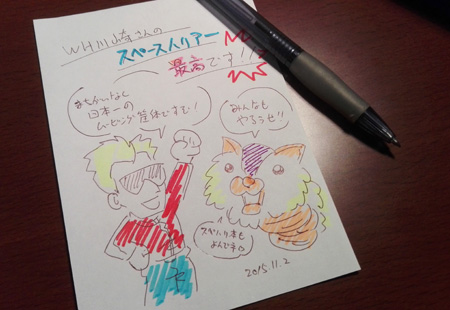 WH川崎さんの
スペースハリアー
最高です!!
まちがいなく
日本一の
ムービング筐体ですむ!
みんなも
やろうぜ!!
スペハリ本も
よんでネ
2015.11.2